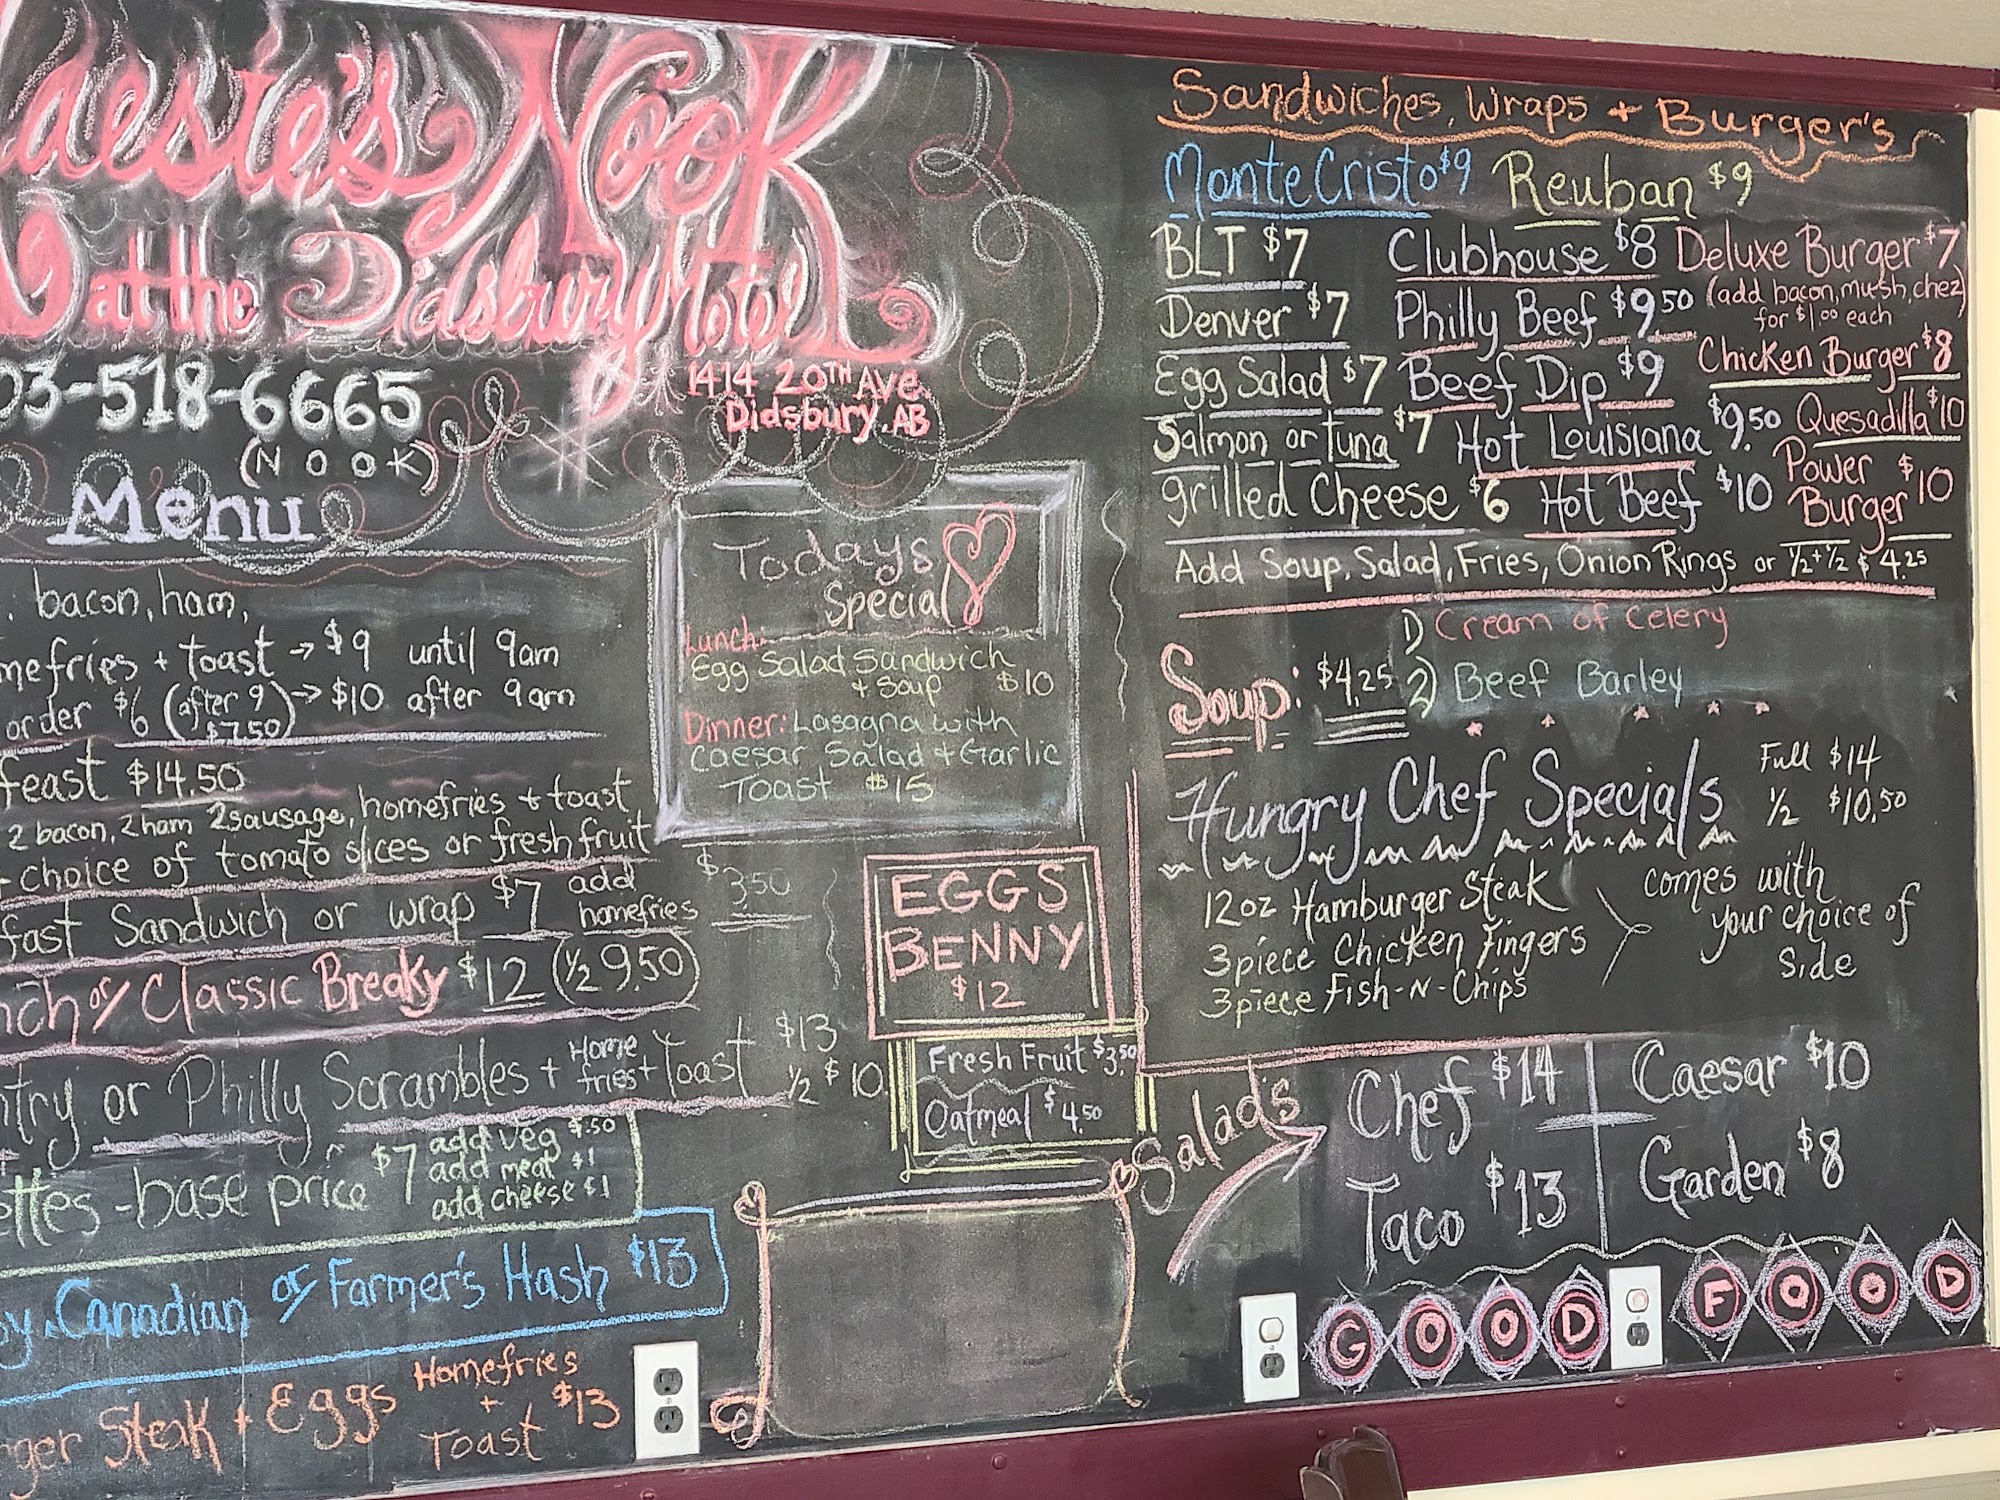 Nook
at the Didsbury Motel
03-518-6665
(NOOK)
1414 20TH Ave
Didsbury. AB
Menu
bacon, ham,
mefries + toast → $9 until 9am
order $6 (after 9 $7.50) → $10 after 9am
feast $14.50
2 bacon, 2 ham 2 sausage, homefries + toast
+ choice of tomato slices or fresh fruit
fast Sandwich or wrap $7 add homefries $3.50
nch or Classic Breaky $12 (1/2 9.50)
ntry or Philly Scrambles + Home fries + Toast $13
1/2 $10.
ettes - base price $7
add veg $.50
add meat $1
add cheese $1
Canadian or Farmer's Hash $13
ger Steak + Eggs Homefries + Toast $13
Todays
Special
Lunch:
Egg Salad Sandwich
+ Soup $10
Dinner: Lasagna with
Caesar Salad + Garlic
Toast $15
EGGS
BENNY
$12
Fresh Fruit $3.50
Oatmeal $4.50
Sandwiches, Wraps + Burger's
Monte Cristo $9 Reuban $9
BLT $7 Clubhouse $8 Deluxe Burger $7
(add bacon, mush, chez)
for $1.00 each
Denver $7 Philly Beef $9.50
Chicken Burger $8
Egg Salad $7 Beef Dip $9
Salmon or Tuna $7 Hot Louisiana $9.50 Quesadilla $10
grilled Cheese $6 Hot Beef $10 Power Burger $10
Add Soup, Salad, Fries, Onion Rings or 1/2 + 1/2 $4.25
Soup: $4.25
1) Cream of Celery
2) Beef Barley
Hungry Chef Specials Full $14
1/2 $10.50
12oz Hamburger Steak
3 piece Chicken Fingers
3 piece Fish-N-Chips
comes with
your choice of
side
Salad's
Chef $14 Caesar $10
Taco $13 Garden $8
GOOD FOOD